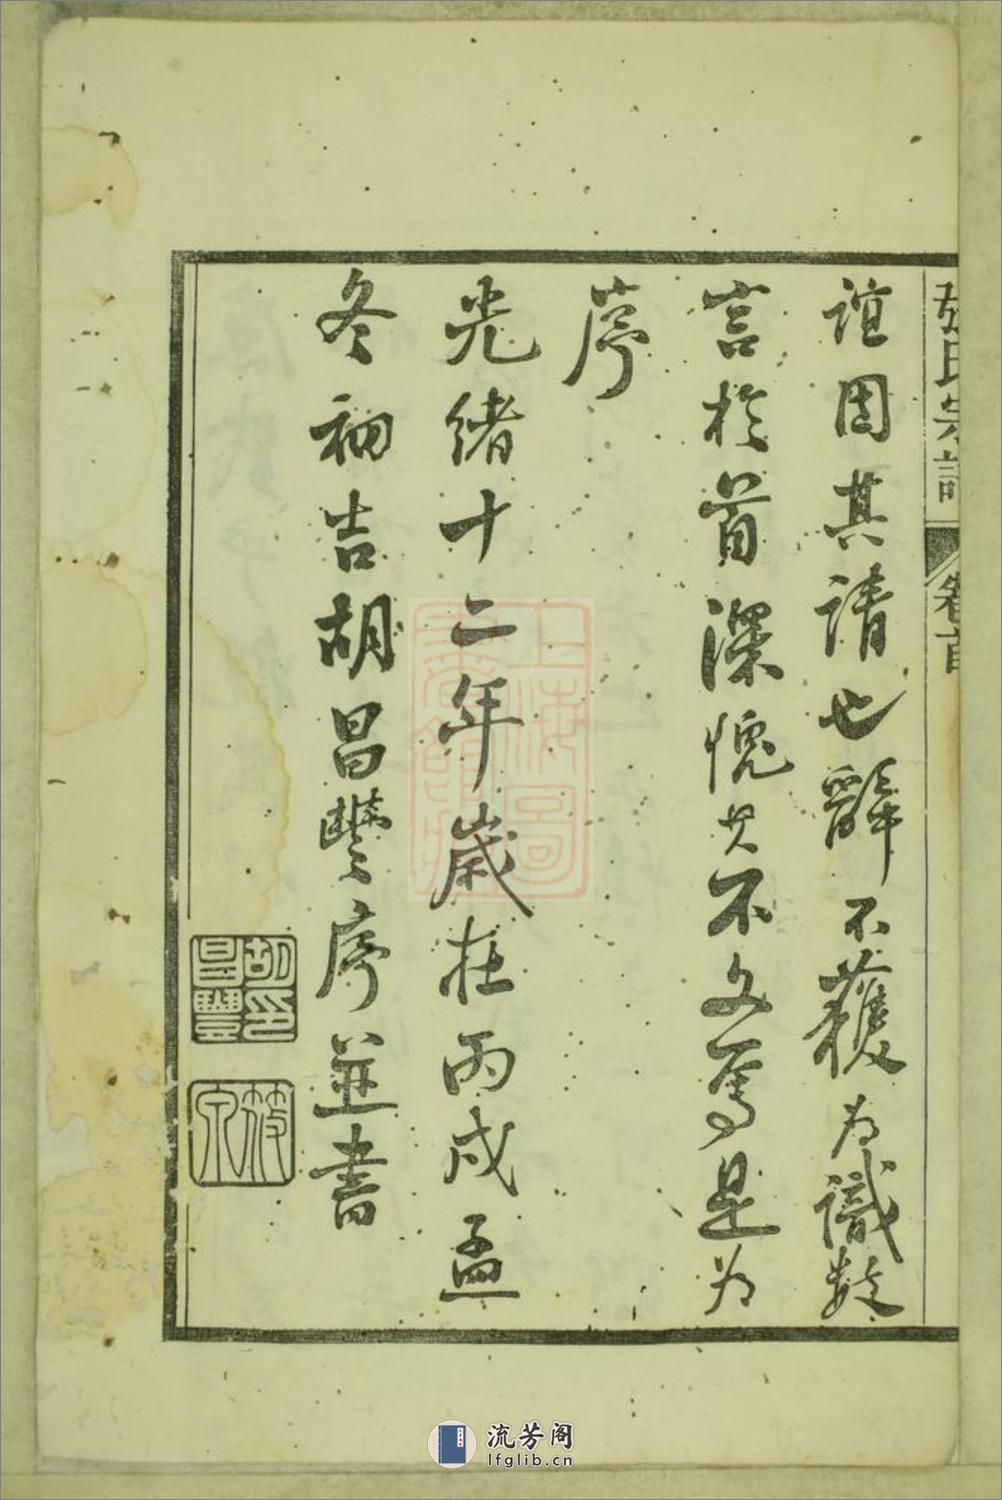 張氏宗譜 卷首
誼固其請也辭不獲為識數
言於首深愧其不文焉是為
序
光緒十二年歲在丙戌孟
冬初吉胡昌豐序並書
胡昌豐印
流芳阁
lfglib.cn